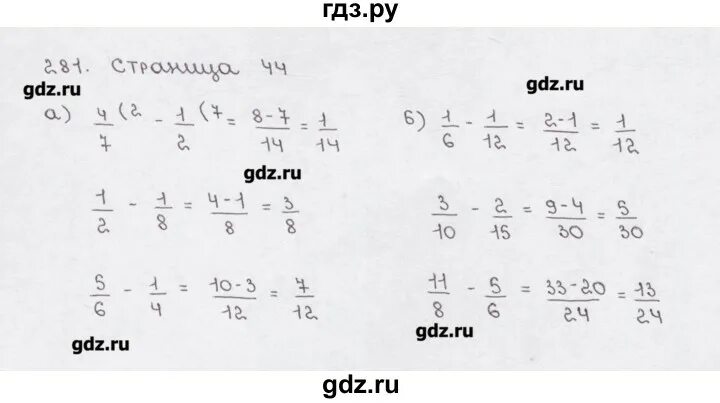 гдз.ру
281. страница 44
gdz.ru
gdz.ru
а) 4/7 (2 - 1/2 (7 = 8-7/14 = 1/14
б) 1/6 - 1/12 = 2-1/12 = 1/12
gdz.ru
1/2 - 1/8 = 4-1/8 = 3/8
3/10 - 2/15 = 9-4/30 = 5/30
5/6 - 1/4 = 10-3/12 = 7/12
11/8 - 5/6 = 33-20/24 = 13/24
gdz.ru
gdz.ru
gdz.ru